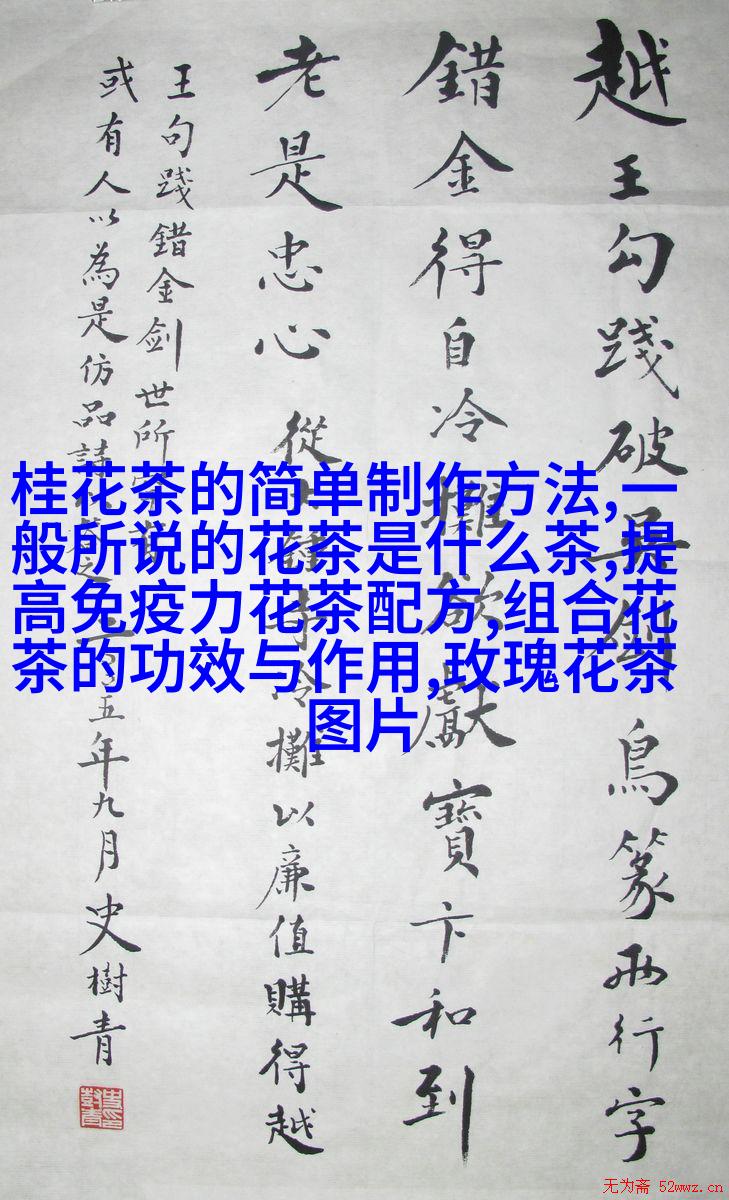 越王勾踐破吴剑鳥篆两行字
錯金得自冷攤欲獻寶卞和到
老是忠心
從寺冷攤以廉值購得越
王句踐錯金剑世所
或有人以為是仿品請五年九月史樹青
桂花茶的简单制作方法,一
般所说的花茶是什么茶,提
高免疫力花茶配方,组合花
茶的功效与作用,玫瑰花茶
图片
无为斋 52wwz.cn